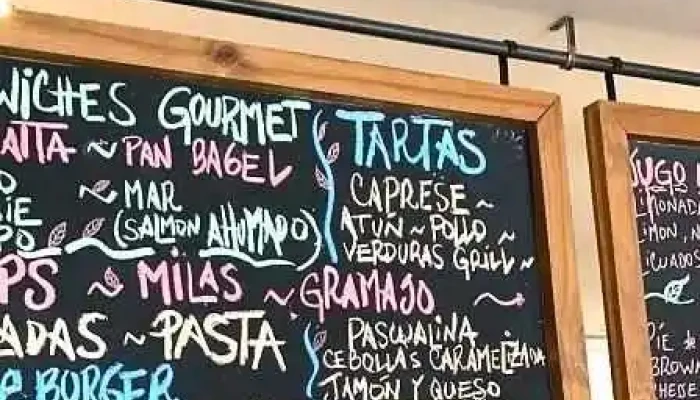 WICHES GOURMET
ATTA ~ PAN BAGEL
MAR
(SALMON AHUMADO)
PS ~ MILAS ~ GRAMAJO
ADAS ~ PASTA
BURGER
TARTAS
CAPRESE ~
ATUN ~ POLLO ~
VERDURAS GRILL ~
PASCUALINA
CEBOLLAS CARAMELIZADA
JAMÓN Y QUESO
JUGO
LIMONADA
LIMON, N
LICUADOS
PIE *
BROWN
CHEESE